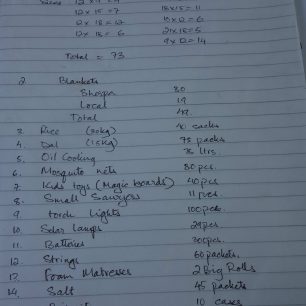 12 x 15 = 7 18 x 15 = 11
12 x 18 = 12 15 x 12 = 6
12 x 18 = 6 21 x 18 = 5
9 x 12 = 14
Total = 73
2. Blankets
Sherpa 30
Local 19
Total 49
3. Rice (30kg) 40 sacks
4. Dal (15kg) 75 packs
5. Oil Cooking 75 ltrs.
6. Mosquito nets 80 pcs.
7. Kids toys (Magic boards) 40 pcs
8. Small 11 pcs.
9. torch lights 100 pcs.
10. Solar lamps 29 pcs
11. Batteries 300 pcs.
12. Strings 60 packets.
13. Foam Matresses 2 Big Rolls
14. Salt 45 packets
10 cases